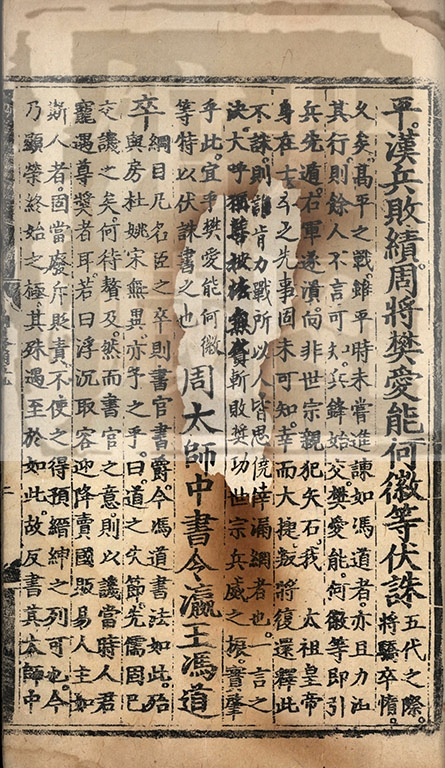 平漢兵敗績。周將樊愛能何徽等伏誅
五代之際。
將驕卒惰。
久矣。髙平之戰。雖平時未嘗進諫如馮道者。亦且力沮
其行。則餘人不言可知矣。兵鋒始交。樊愛能何徽等即引
兵先遁。右軍遂潰。向非世宗親犯矢石。我 太祖皇帝
身在士卒之先。事固未可知。幸而大捷。叛將復還。釋此
不誅。則誰肯力戰。所以人皆思僥倖漏網者也。一言之
决。大呼稱善。按法無貸。斬敗奬功。世宗兵威之振。實肇
乎此。宜乎樊愛能何徽
等特以伏誅書之也
周太師中書令瀛王馮道
卒
綱目凡名臣之卒。則書官書爵。今馮道書法如此。殆
與房杜姚宋無異。亦予之乎。曰。道之失節。先儒固已
交譏之矣。何待贅及。然而書官之意。則以譏當時人君
寵遇尊奬者耳。若曰浮沉取容迎降賣國販易人主如
斯人者。固當廢斥貶責。不使之得預縉紳之列可也。今
乃顯榮終始之極其殊遇至於如此。故反書其太師中
二